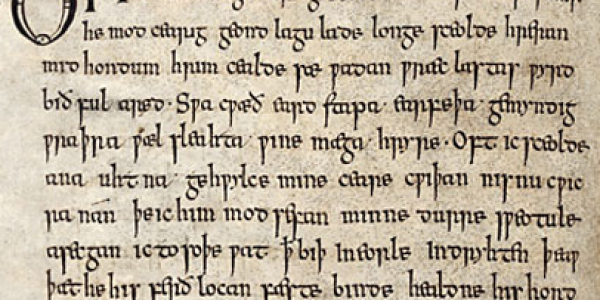 O
he mod cearig geond lagu lade longe sceolde hreran
mid hondum hrim cealde sæ ƿadan ƿræc lastas ƿyrd
bið ful aræd · Sƿa cƿæð eard stapa · earfeþa · gemyndig
ƿraþra ƿæl sleahta · ƿine mæga · hryre · Oft ic sceolde
ana uhtna · gehƿylce mine ceare cƿiþan nis nu cƿic
ra nan þe ic him mod sefan minne durre sƿeotule
asecgan ic to soþe ƿat ꝥ biþ in eorle indryhten þeaƿ
þæt he his ferð locan fæste binde healdne his hord